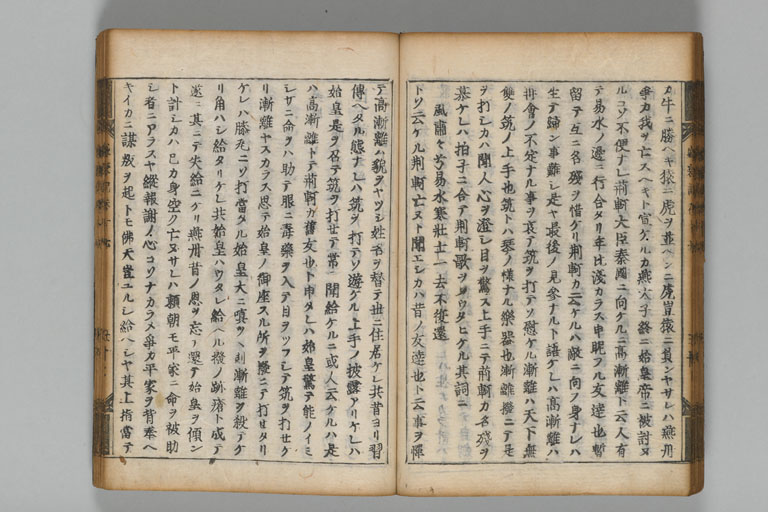 カ牛ニ勝ヘキ猿ニ虎ヲ並ヘンニ虎豈猿ニ負ンヤサレハ燕丹
争カ我ヲ亡スヘキト宣ケルカ燕太子終ニ始皇帝ニ被討ヌ
ルコソ不便ナレ荊軻大臣秦國ニ向ケルニ高漸離ト云人有
テ易水ノ邊ニ行合タリ年比淺カラス申眤フル友達也暫
留テ互ニ名殘ヲ惜ケリ荊軻カ云ケルハ敵ニ向フ身ナレハ
生テ歸ン事難シ是ヤ最後ノ見参ナルト語ケレハ高漸離ハ
再會ノ不定ナル事ヲ哀テ筑ヲ打テソ慰ケル漸離ハ天下無
雙ノ筑ノ上手也筑トハ琴ノ様ナル樂器也漸離撥ニテ是
ヲ打シカハ聞人心ヲ澄シ目ヲ驚ス上手ニテ荊軻カ名殘ヲ
慕ケレハ拍子ニ合テ荊軻歌ヲソウタヒケル其詞ニ
風蕭々兮易水寒壮士一去不復還
トソ云ケル荊軻亡ヌト聞エシカハ昔ノ友達也ト云事ヲ憚
テ高漸離ハ貌ヲヤツシ姓名ヲ替テ世ニ住居ケレ共昔ヨリ習
傳ヘタル態ナレハ筑ヲ打テソ遊ケル上手ノ披露アリケレハ
始皇是ヲ召テ筑ヲ打セテ常ニ聞給ケルニ或人云ケルハ是
ハ高漸離トテ荊軻カ舊友也ト申タレハ始皇驚テ能ノイミ
シサニ命ヲハ助テ眼ニ毒藥ヲ入テ目ヲツフシテ筑ヲ打セケ
リ漸離ヤスカラス思テ始皇ノ御座スル所ヲ撥ニテ打タリ
ケレハ膝先ニソ打當タル始皇大ニ嗔ヲ漸離ヲ殺テケ
リ角ハシ給タリケレ共始皇ハウタレ給ヘル撥ノ跡瘡ト成テ
遂ニ其ニテ失給ニケリ燕丹昔ノ恩ヲ忘テ還テ始皇ヲ傾ン
ト計シカハ已カ身空ク亡ヌサレハ頼朝モ平家ニ命ヲ被助
シ者ニアラスヤ縦報謝ノ心コソナカラメ争カ平家ヲ背奉ヘ
キイカニ謀叛ヲ起トモ佛天豈ユルシ給ヘシヤ其上指當テ